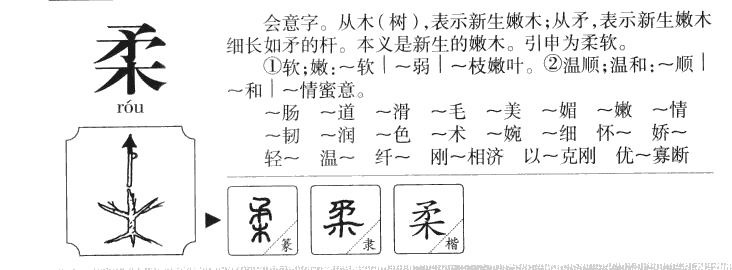 柔
róu
会意字。从木（树），表示新生嫩木；从矛，表示新生嫩木
细长如矛的杆。本义是新生的嫩木。引申为柔软。
①软；嫩：～软｜～弱｜～枝嫩叶。②温顺；温和：～顺｜
～和｜～情蜜意。
～肠 ～道 ～滑 ～毛 ～美 ～媚 ～嫩 ～情
～韧 ～润 ～色 ～术 ～婉 ～细 怀～ 娇～
轻～ 温～ 纤～ 刚～相济 以～克刚 优～寡断
柔 篆 柔 隶 柔 楷